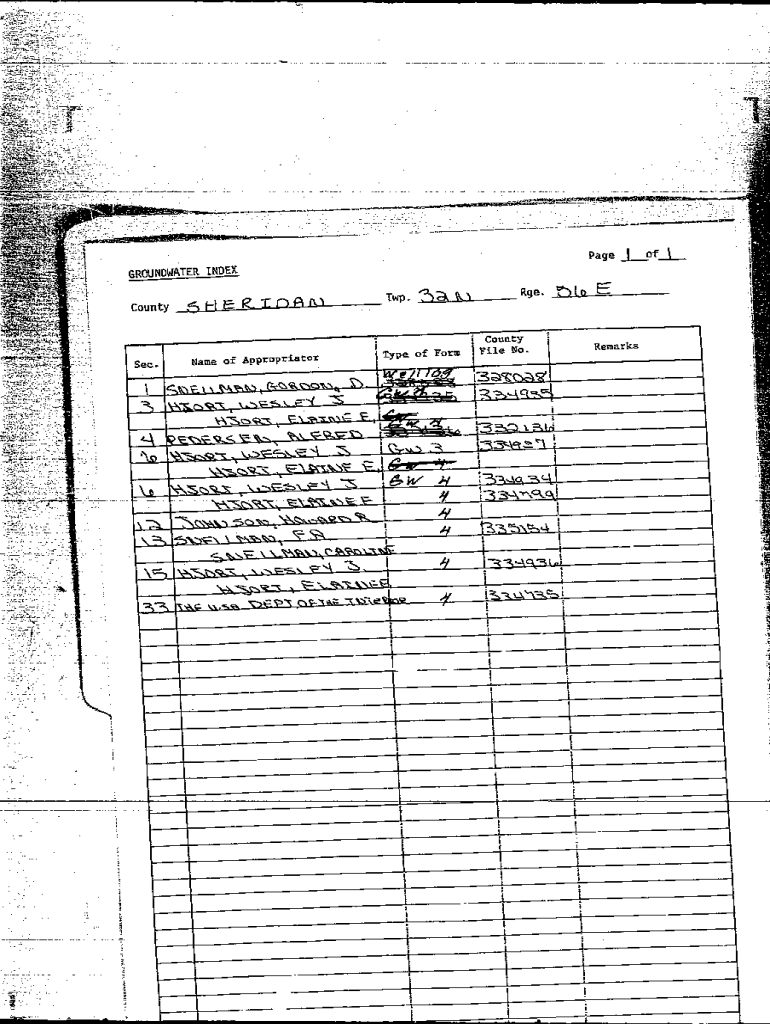 Page 1 of 1
GROUNDWATER INDEX
County SHERIDAN Twp. 32N Rge. 56E
Sec. Name of Appropriator Type of Form County File No. Remarks
1 SNELLMAN, GORDON, D. Well log 328028
3 HJORT, WESLEY J 334935
HJORT, ELAINE E. GW
4 PEDERSEN, ALFRED GW 4 332136
6 HJORT, WESLEY J GW 3 334937
HJORT, ELAINE E. GW 4
6 HJORT, WESLEY J GW 4 334934
HJORT, ELAINE E 4 334799
12 JOHNSON, HOWARD R 4
13 SNELLMAN, F A 4 335154
SNELLMAN, CAROLINE
15 HJORT, WESLEY J. 4 334936
HJORT, ELAINE E
33 THE USA DEPT OF THE INTERIOR 4 334735